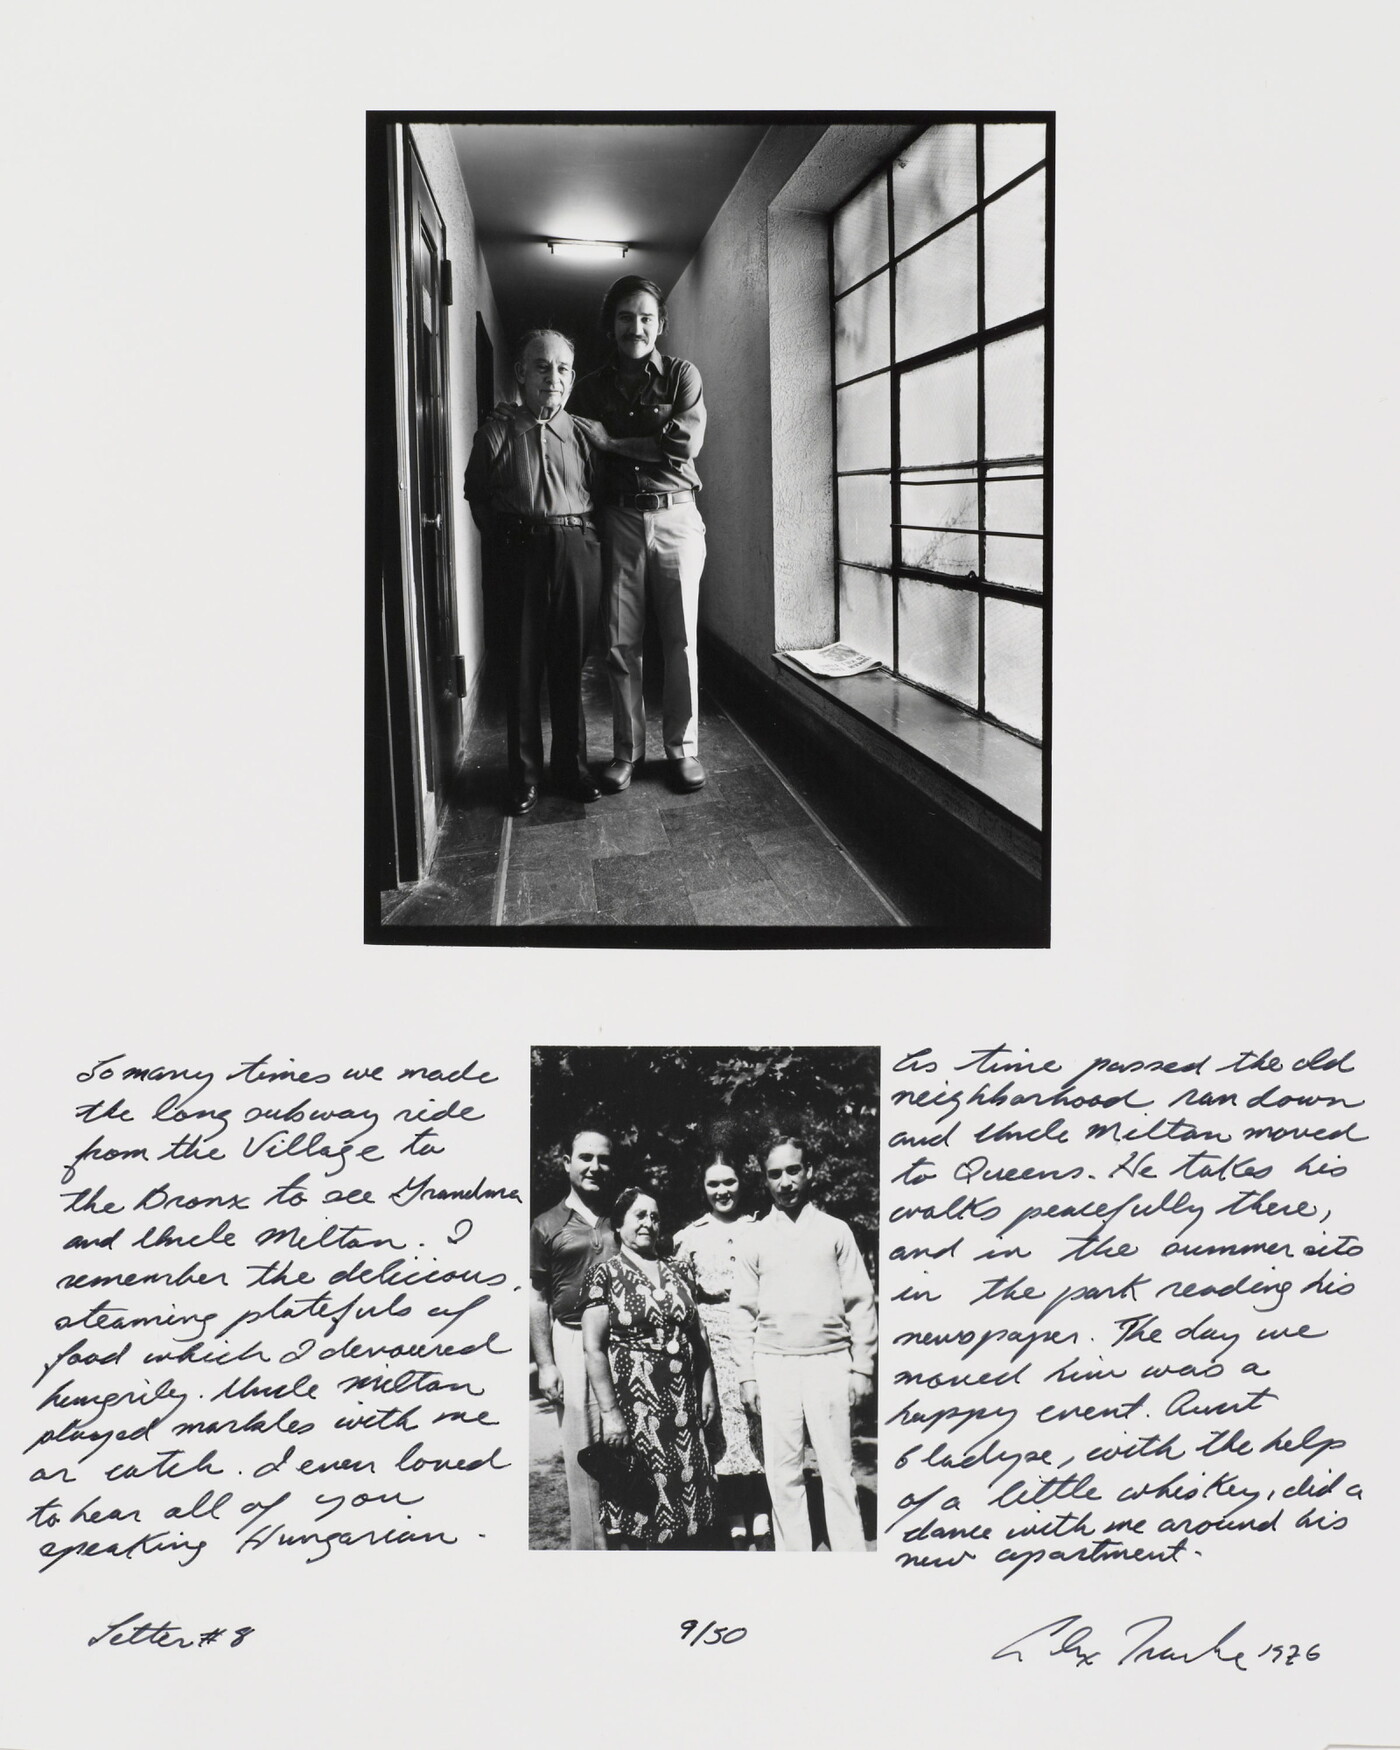 So many times we made
the long subway ride
from the Village to
the Bronx to see Grandma
and Uncle Milton. I
remember the delicious,
steaming platefuls of
food which I devoured
hungrily. Uncle Milton
played marbles with me
or catch. I even loved
to hear all of you
speaking Hungarian.
As time passed the old
neighborhood ran down
and Uncle Milton moved
to Queens. He takes his
walks peacefully there,
and in the summer sits
in the park reading his
newspaper. The day we
moved him was a
happy event. Aunt
with the help
of a little whiskey, did a
dance with me around his
new apartment.
Letter #8
9/50
Alex 1976